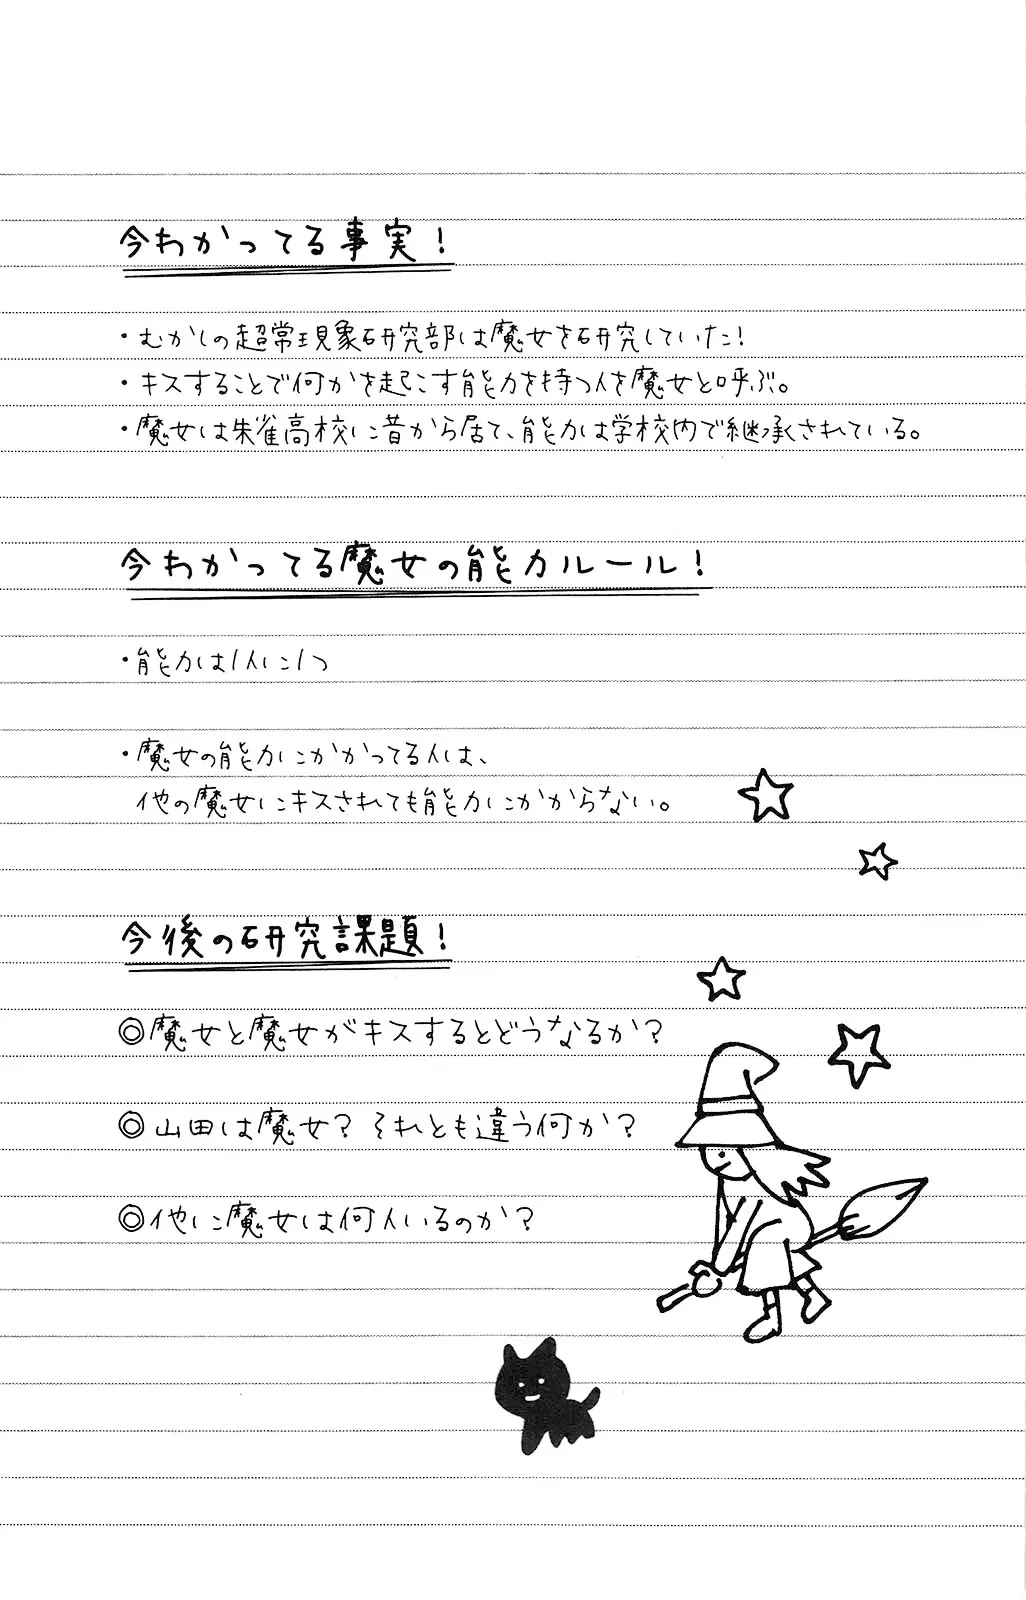 今わかってる事実!
・むかしの超常現象研究部は魔女を研究していた!
・キスすることで何かを起こす能力を持つ人を魔女と呼ぶ。
・魔女は朱雀高校に昔から居て、能力は学校内で継承されている。
今わかってる魔女の能力ルール!
・能力は1人に1つ
・魔女の能力にかかってる人は、
他の魔女にキスされても能力にかからない。
今後の研究課題!
◎魔女と魔女がキスするとどうなるか?
◎山田は魔女? それとも違う何か?
◎他に魔女は何人いるのか?